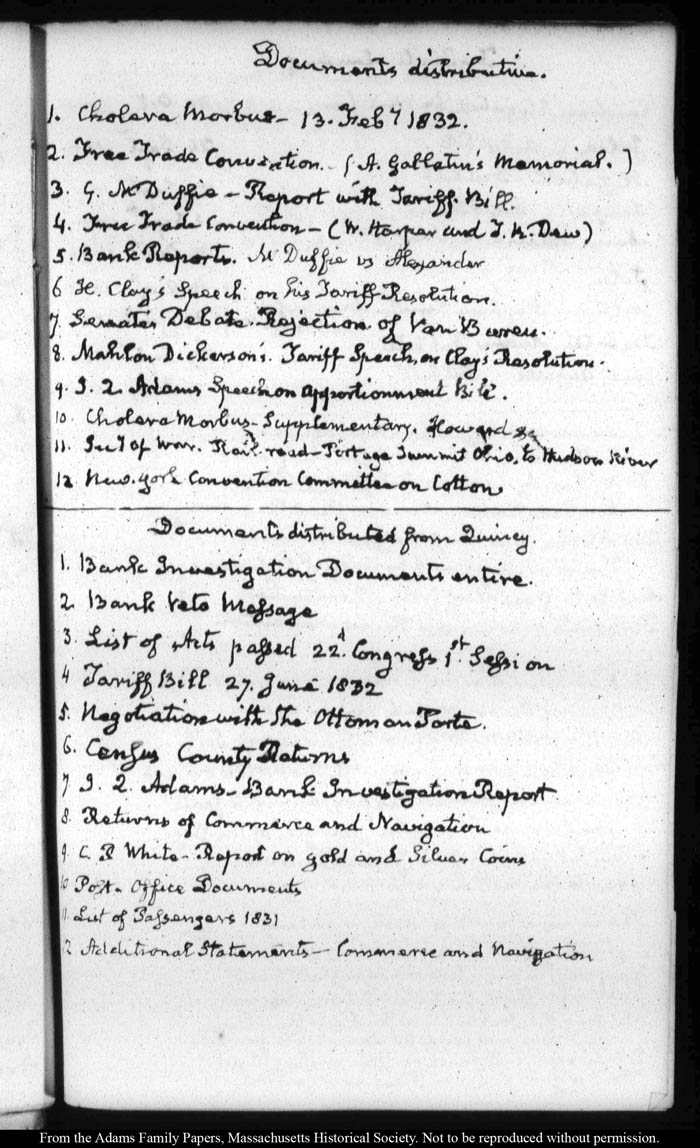 Documents distributive.
1. Cholera Morbus - 13. Feby 1832.
2. Free Trade Convention. (A. Gallatin's Memorial.)
3. G. McDuffie - Report with Tariff Bill.
4. Free Trade Convention - (W. Harper and T. R. Dew)
5. Bank Reports. McDuffie vs Alexander
6 H. Clay's Speech on his Tariff Resolution.
7. Senate's Debate. Rejection of Van Buren.
8. Mahlon Dickerson's. Tariff Speech, on Clay's Resolution.
9. J. Q. Adams Speech on apportionment Bill.
10. Cholera Morbus - Supplementary. Howard &c
11. Secy of War. Rail road - Portage Summit Ohio, to Hudson River
12 New. York Convention Committee on Cotton
Documents distributed from Quincy.
1. Bank Investigation Documents entire.
2 Bank Veto Message
3. List of Acts passed 22d. Congress 1st. Session
4 Tariff Bill 27. June 1832
5. Negotiation with the Ottoman Porte.
6. Census County Returns
7 J. Q. Adams - Bank Investigation Report
8. Returns of Commerce and Navigation
9. C. P White - Report on gold and Silver Coins
10 Post - Office Documents
11. List of Passengers 1831
12 Additional Statements - Commerce and Navigation
From the Adams Family Papers, Massachusetts Historical Society. Not to be reproduced without permission.